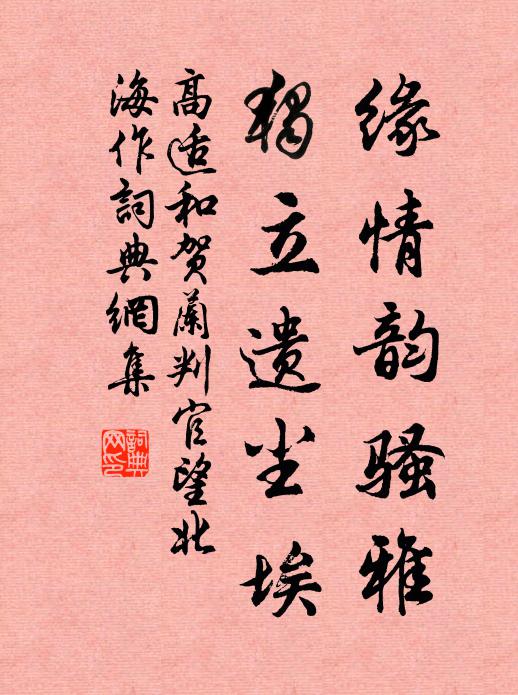 缘情韵骚雅
独立遗尘埃
高适和贺蘭判官望北
海作詞典網集
詞典
网印